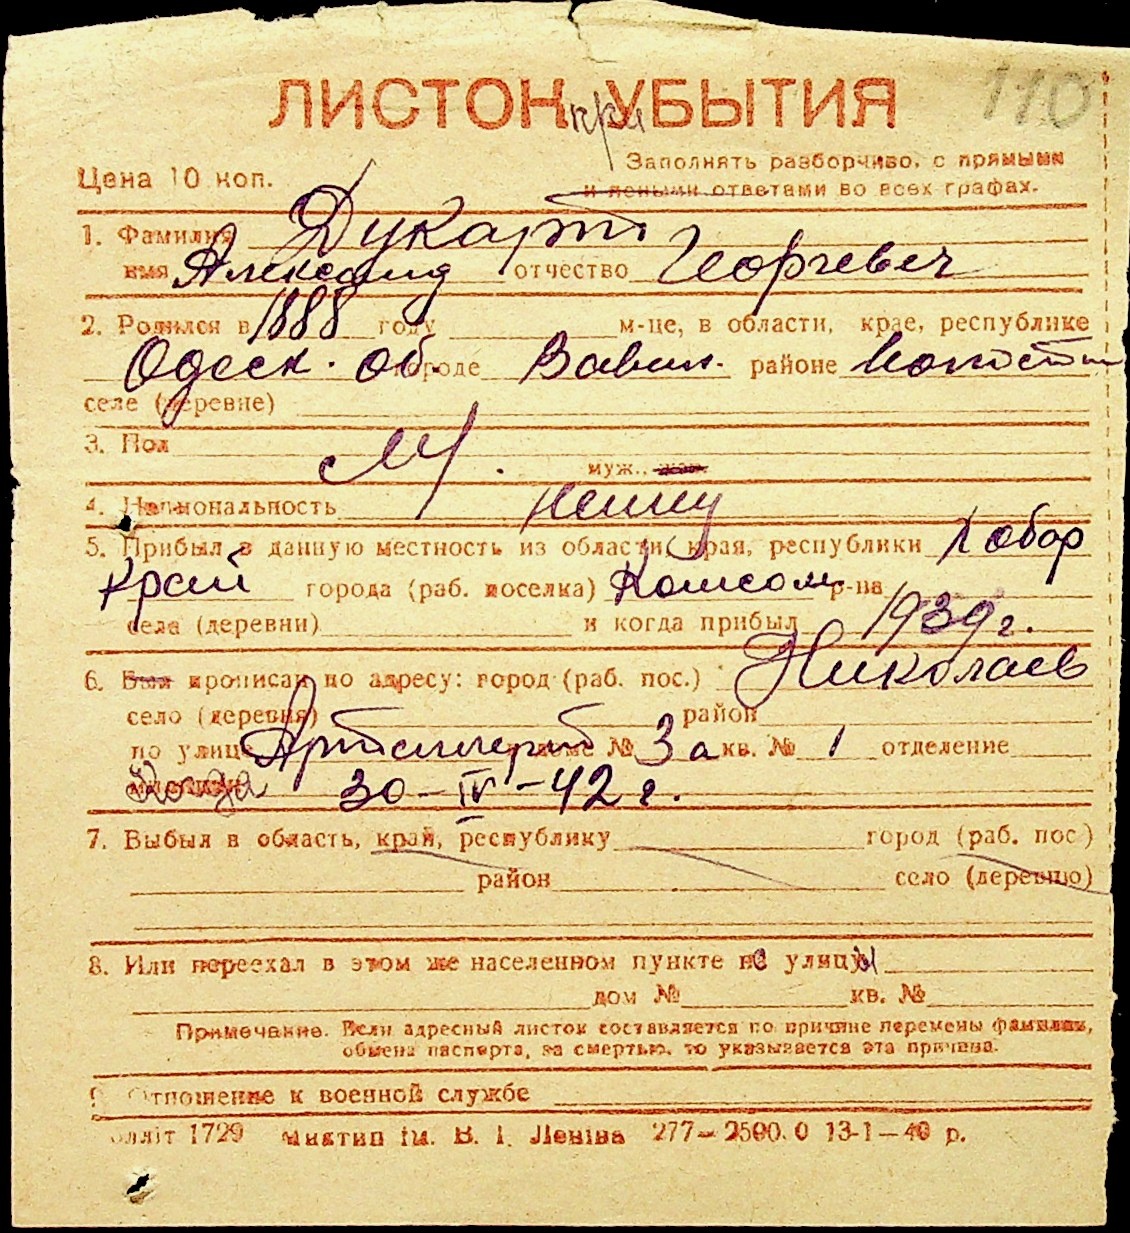 110
ЛИСТОК УБЫТИЯ
при
Заполнять разборчиво, с прямыми
Цена 10 коп.
и ясными ответами во всех графах.
1. Фамилия Дукарт
имя Александ отчество Георгевич
2. Родился в 1888 году м-це, в области, крае, республике
Одеск. об. городе Вавил. районе
селе (деревне)
3. Пол М.
муж., жен.
4. Национальность немец
5. Прибыл в данную местность из области, края, республики Хобар
край города (раб. поселка) Комсом р-на
села (деревни) и когда прибыл 1939 г.
6. Был прописан по адресу: город (раб. пос.) Николаев
село (деревня) район
по улице Артилерит доме № 3а кв. № 1 отделение
милиции Когда 30-IV-42 г.
7. Выбыл в область, край, республику город (раб. пос)
район село (деревню)
8. Или переехал в этом же населенном пункте с улицы
дом № кв. №
Примечание. Если адресный листок составляется по причине перемены фамилии,
обмена паспорта, за смертью, то указывается эта причина.
9. Отношение к военной службе
блліт 1729 Миктип ім. В. І. Леніна 277—2500.0 13-1—40 р.